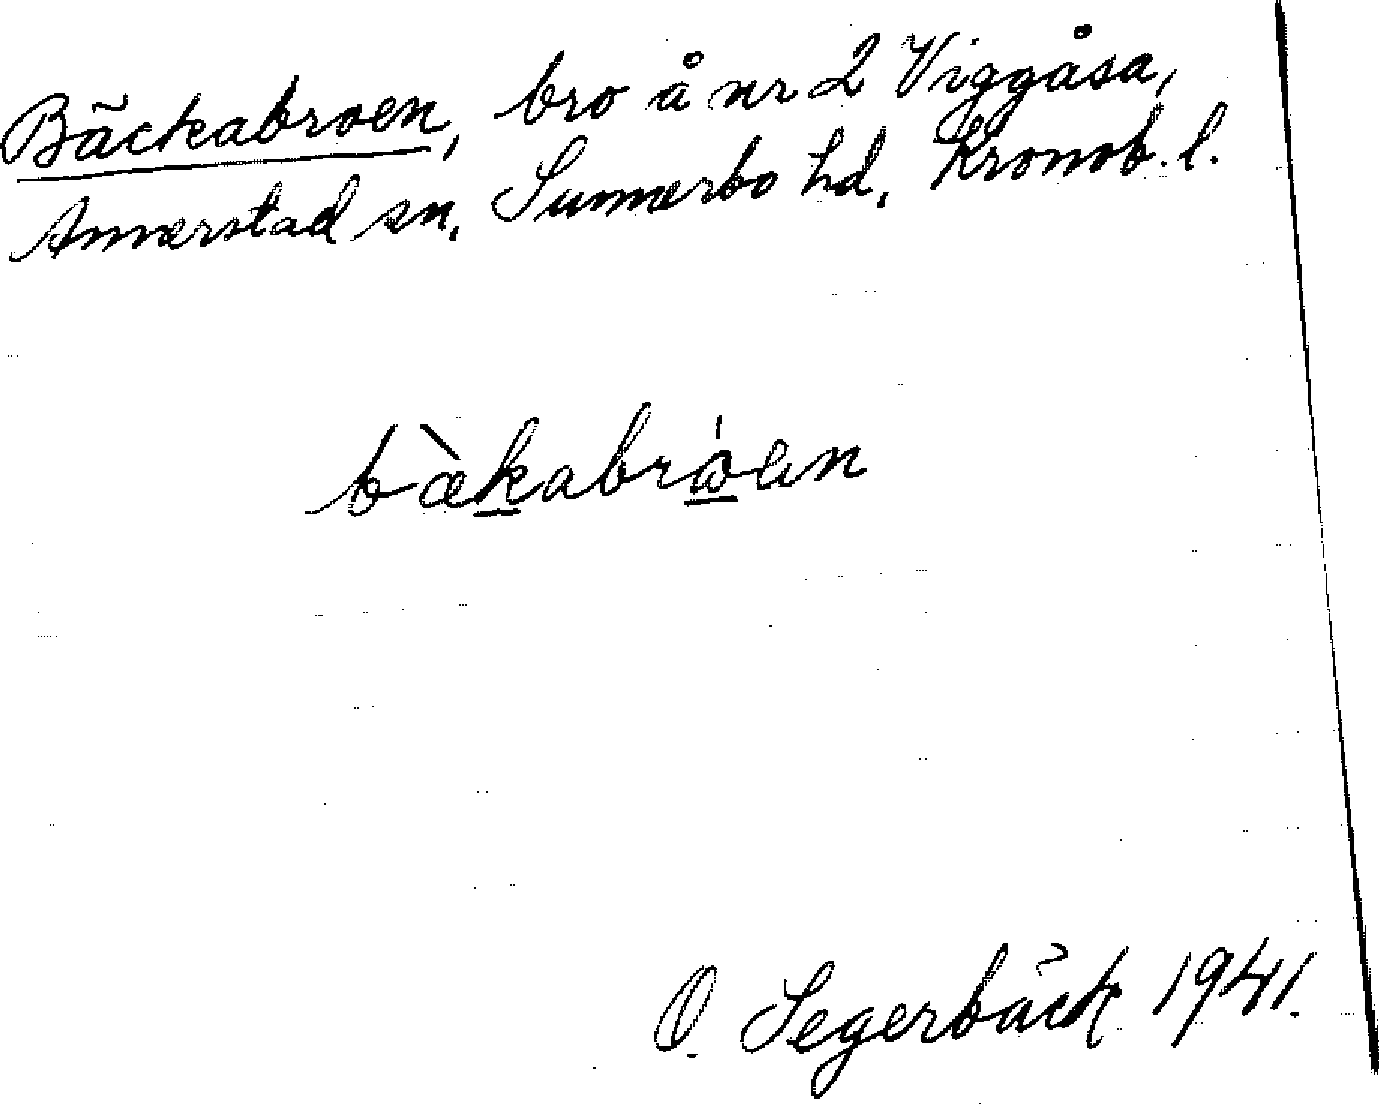 Bäckabroen, bro å nr 2 Viggåsa,
Annerstad sn, Sunnerbo hd, Kronob. l.
bækabroen
O. Segerbäck 1941.